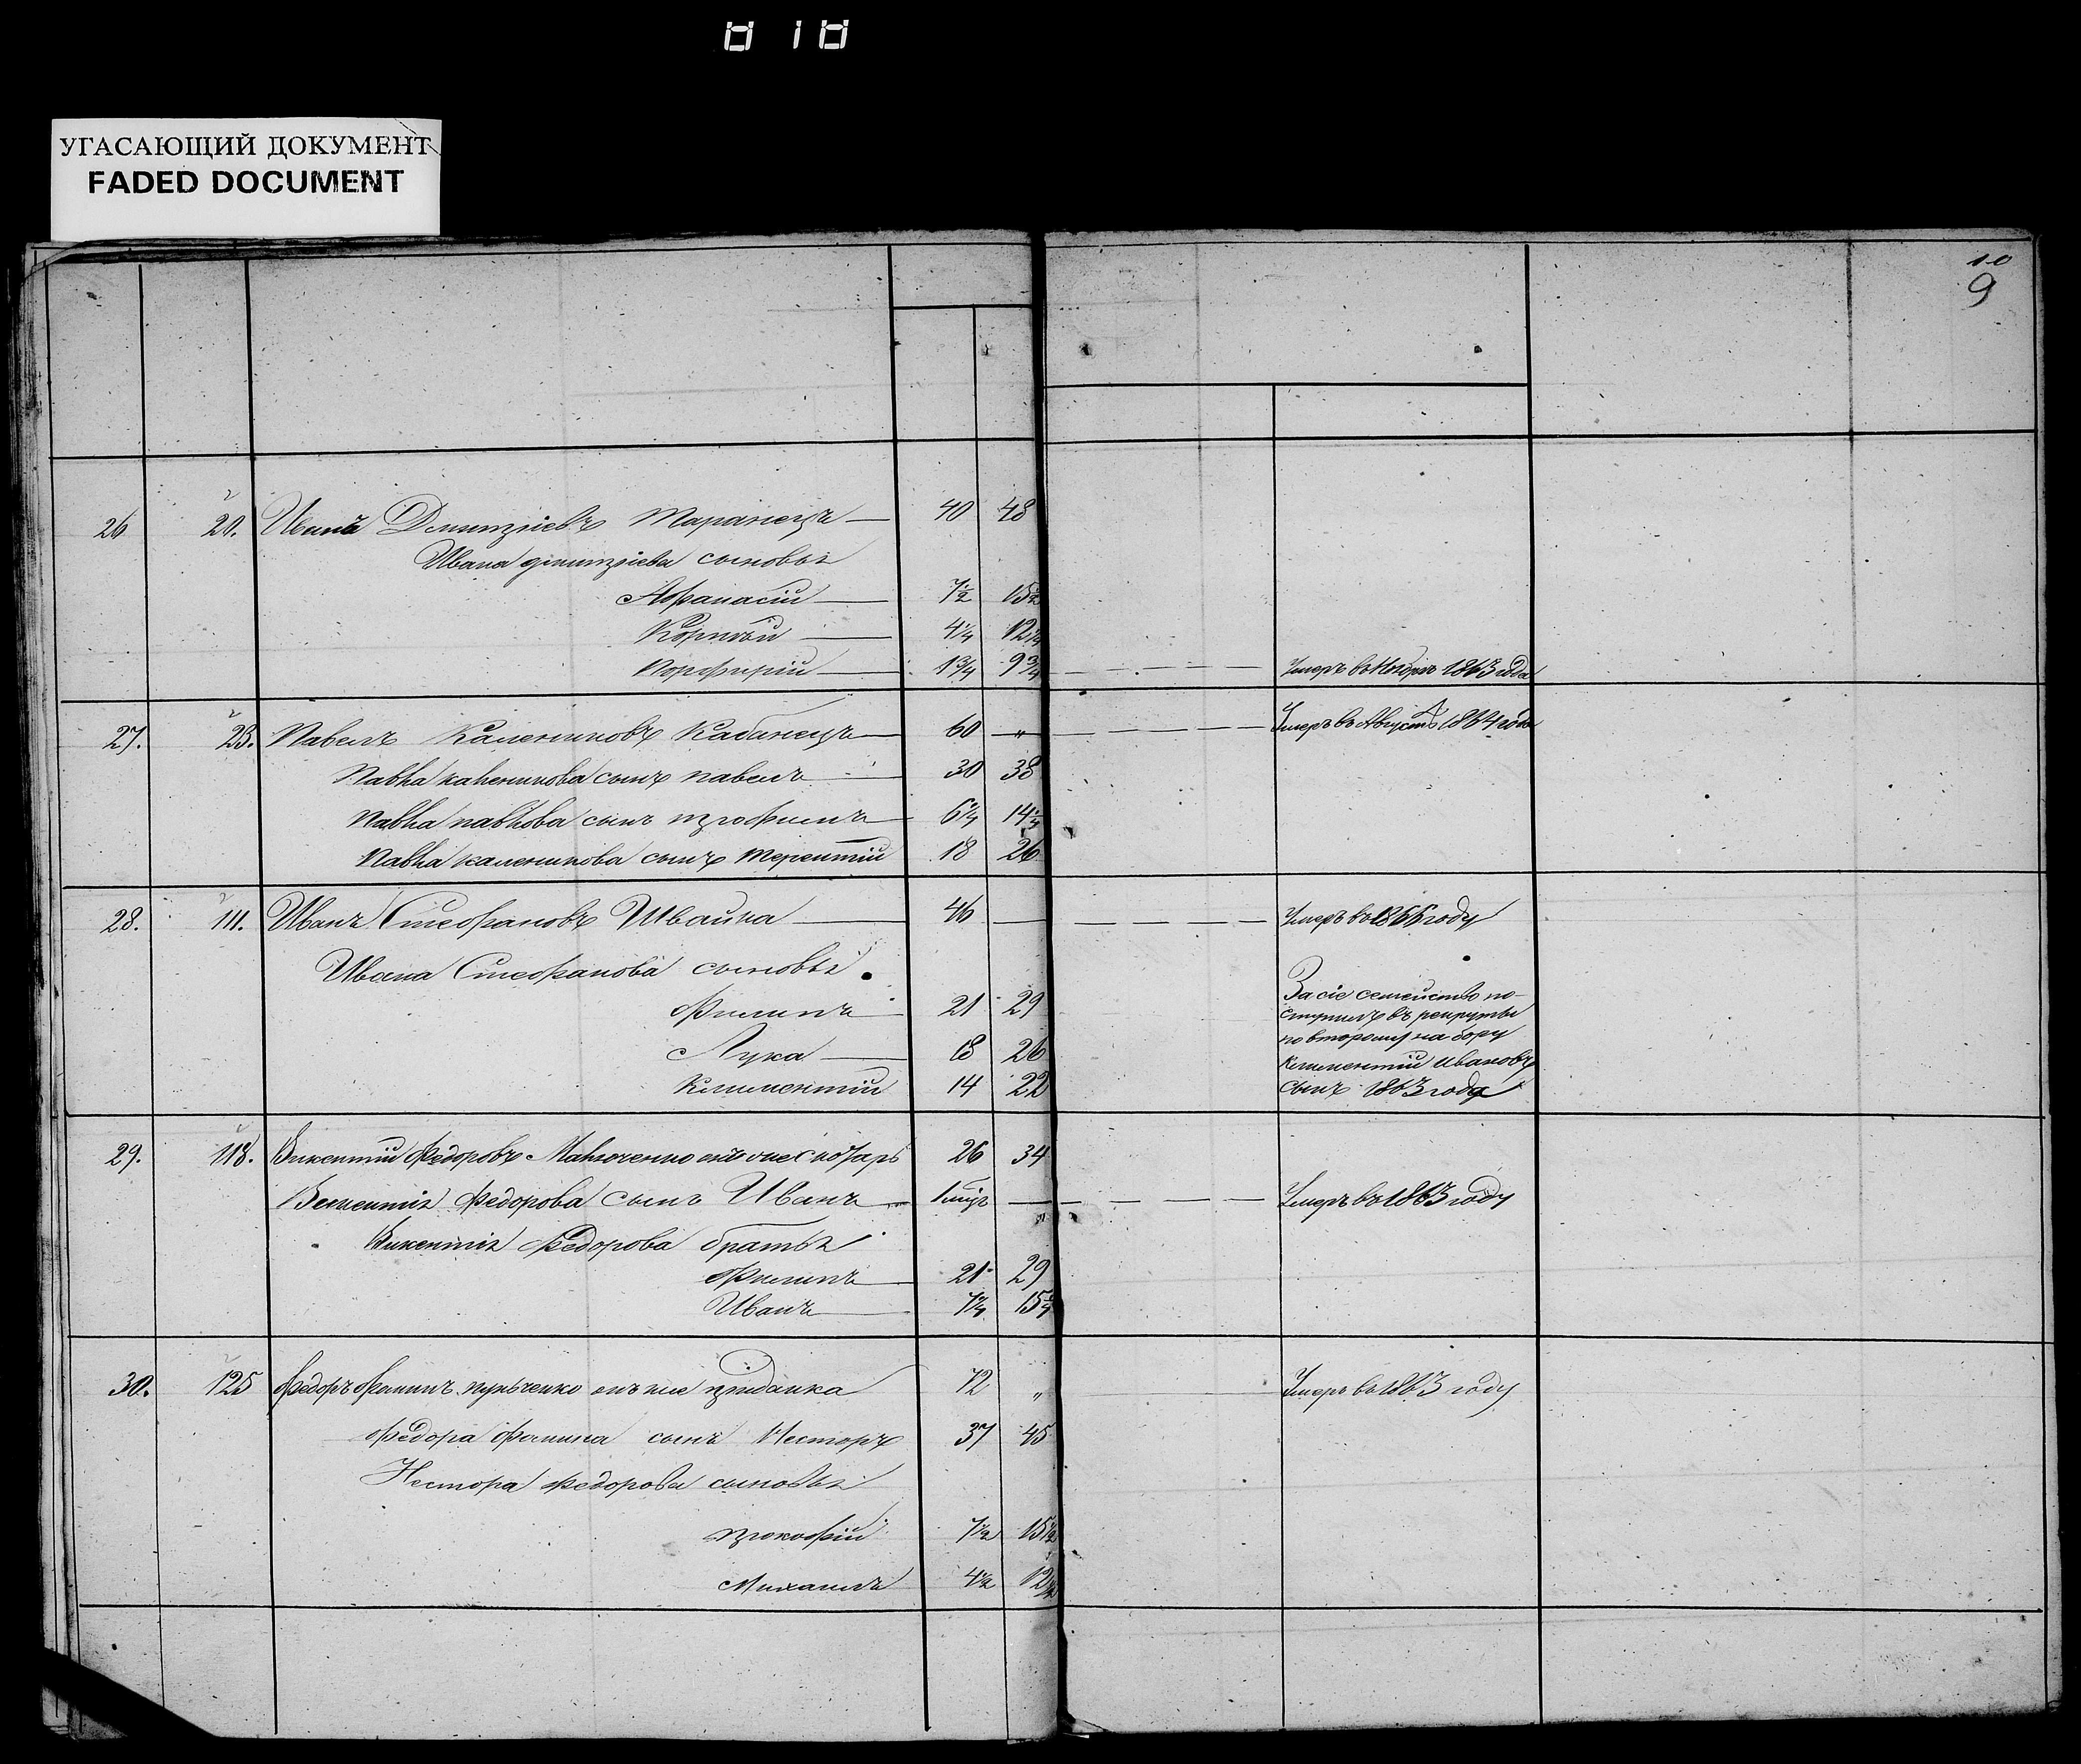 010
УГАСАЮЩИЙ ДОКУМЕНТ
FADED DOCUMENT
10
9
26 20. Иванъ Дмитріевъ Таранецъ — 40 48
Ивана Дмитріева сыновья
Афанасій — 7½ 15½
Корній — 4¼ 12¼
Порфирій — 1¾ 9¾ — — — Умеръ въ Ноябрѣ 1863 года
27. 23. Павелъ Калениковъ Кабанецъ — 60 — „ — — — — Умеръ въ Августѣ 1864 года
Павла Каленикова сынъ Павелъ — 30 38
Павла Павлова сынъ Трофимъ — 6¼ 14¼
Павла Каленикова сынъ Терентій 18 26
28. 111. Иванъ Стефановъ Швайка — 46 — — — — Умеръ въ 1866 году
Ивана Стефанова сыновья
Филипъ — 21 29
Лука — 18 26
Климентій 14 22
За сіе семейство по-
ступилъ въ рекруты
по второму набору
Климентій Ивановъ
сынъ 1863 года
29. 118. Викентій Федоровъ 26 34
Викентія Федорова сынъ Иванъ — — — — — Умеръ въ 1863 году
Викентія Федорова братья
Филипъ — 21 29
Иванъ — 7¼ 15¼
30. 125 Федоръ 72 „ — Умеръ въ 1863 году
Федора Фомина сынъ Несторъ 37 45
Нестора Федорова сыновья
Прокофій 7½ 15½
Михаилъ 4½ 12½